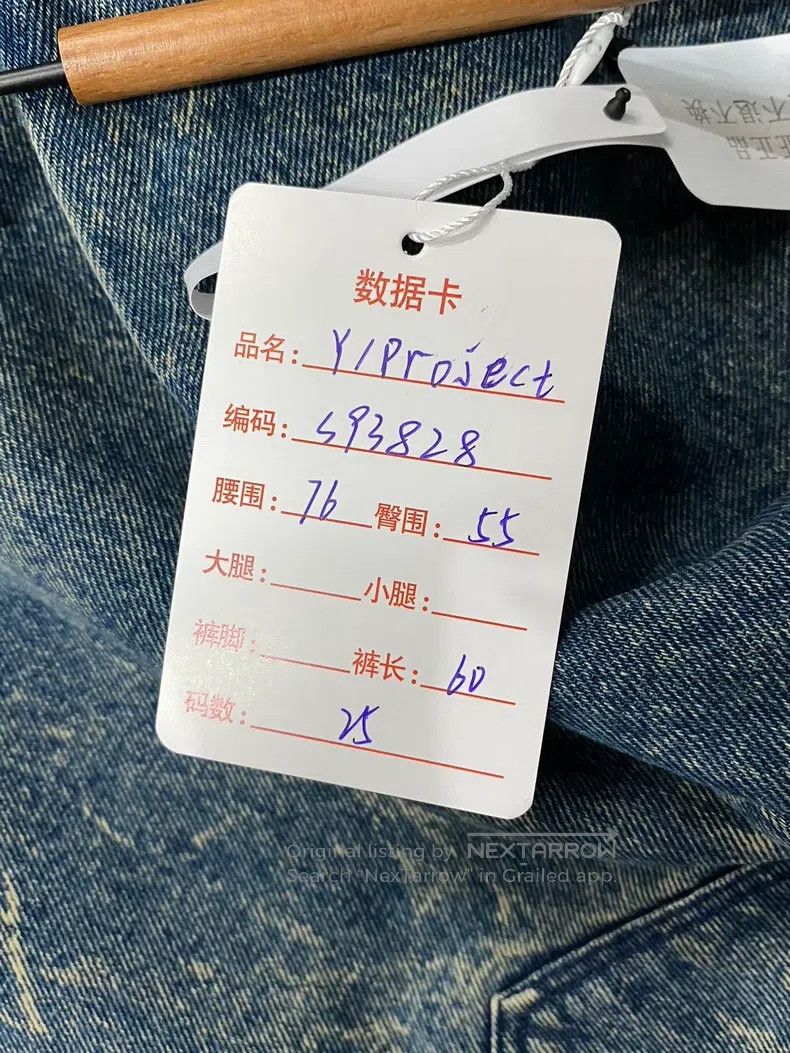 不退不换
正品
数据卡
品名: Y/Project
编码: S93828
腰围: 76 臀围: 55
大腿: 小腿:
裤脚: 裤长: 60
码数: 25
Original listing by NEXTARROW
Search “NexTarrow” in Grailed app.